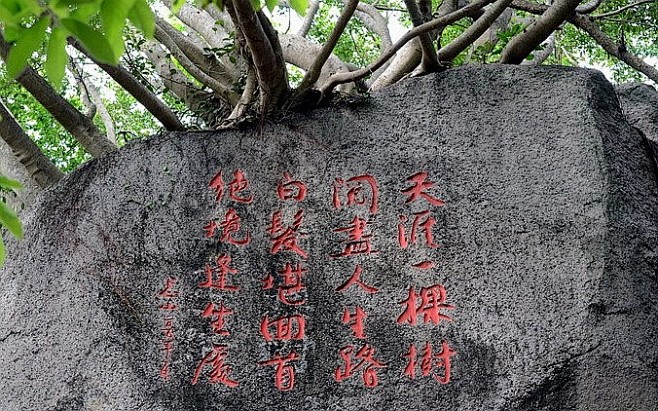 天涯一棵樹
閱盡人生路
白髮堪回首
絕境逢生處